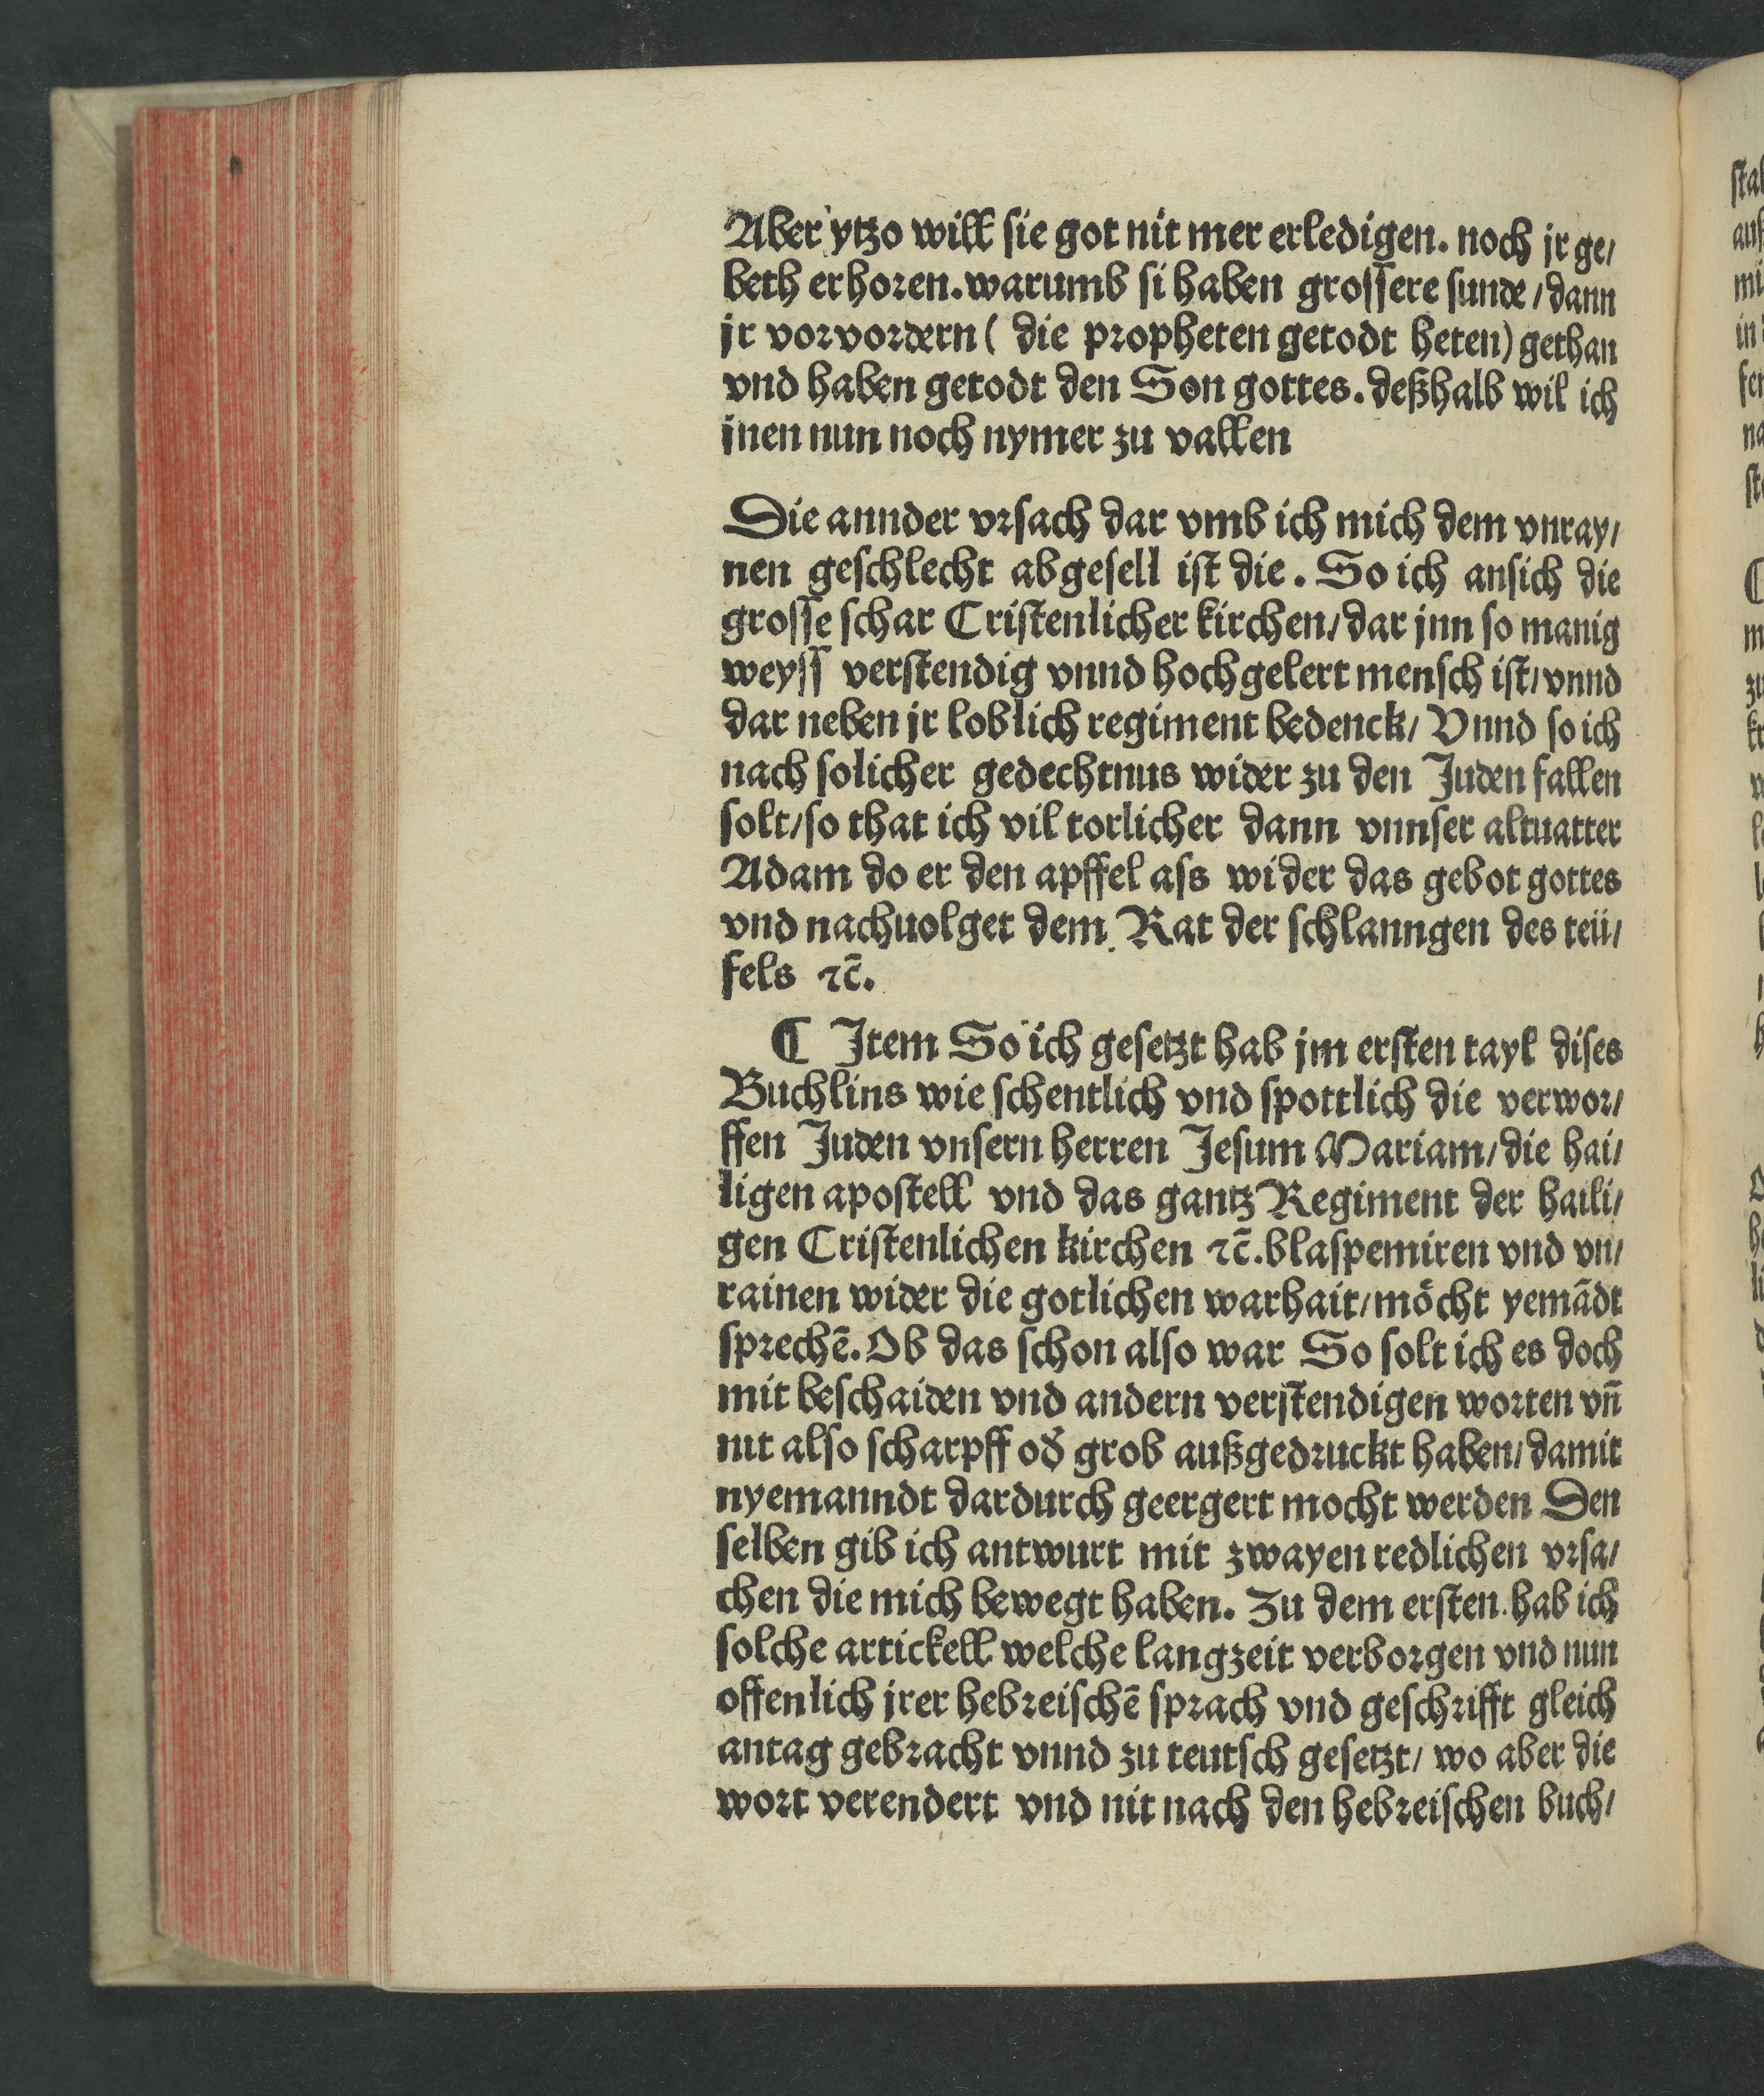 Aber ytzo will sie got nit mer erledigen. noch jr ge/
beth erhoren. warumb si haben grossere sunde / dann
jr vorvordern ( die propheten getodt heten) gethan
vnd haben getodt den Son gottes. deßhalb wil ich
jnen nun noch nymer zu vallen
Die annder vrsach dar vmb ich mich dem vnray/
nen geschlecht abgesell ist die. So ich ansich die
grosse schar Cristenlicher kirchen/ dar jnn so manig
weyss verstendig vnnd hochgelert mensch ist/ vnnd
dar neben jr loblich regiment bedenck/ Vnnd so ich
nach solicher gedechtnus wider zu den Juden fallen
solt/ so that ich vil torlicher dann vnnser altuatter
Adam do er den apffel ass wider das gebot gottes
vnd nachuolget dem Rat der schlanngen des teü/
fels ⁊c̄.
¶ Jtem So ich gesetzt hab jm ersten tayl dises
Buchlins wie schentlich vnd spottlich die verwor/
ffen Juden vnsern herren Jesum Mariam/ die hai/
ligen apostell vnd das gantz Regiment der haili/
gen Cristenlichen kirchen ⁊c̄. blaspemiren vnd vn/
rainen wider die gotlichen warhait/ mőcht yemādt
sprechē. Ob das schon also war So solt ich es doch
mit beschaiden vnd andern verstendigen worten vn̄
nit also scharpff od̕ grob außgedruckt haben/ damit
nyemanndt dardurch geergert mocht werden Den
selben gib ich antwurt mit zwayen redlichen vrsa/
chen die mich bewegt haben. Zu dem ersten hab ich
solche artickell welche langzeit verborgen vnd nun
offenlich jrer hebreischē sprach vnd geschrifft gleich
antag gebracht vnnd zu teutsch gesetzt/ wo aber die
wort verendert vnd nit nach den hebreischen buch/